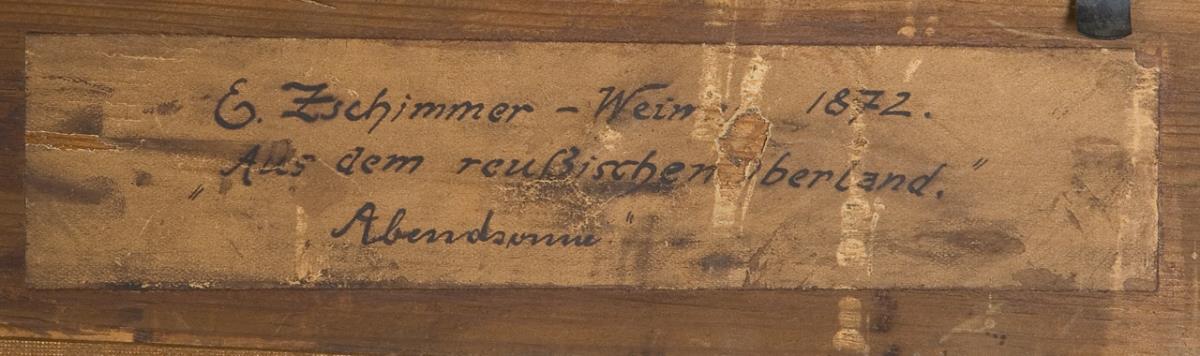 E. Zschimmer – Weim 1872.
„Aus dem reußischen Oberland."
Abendsonne"